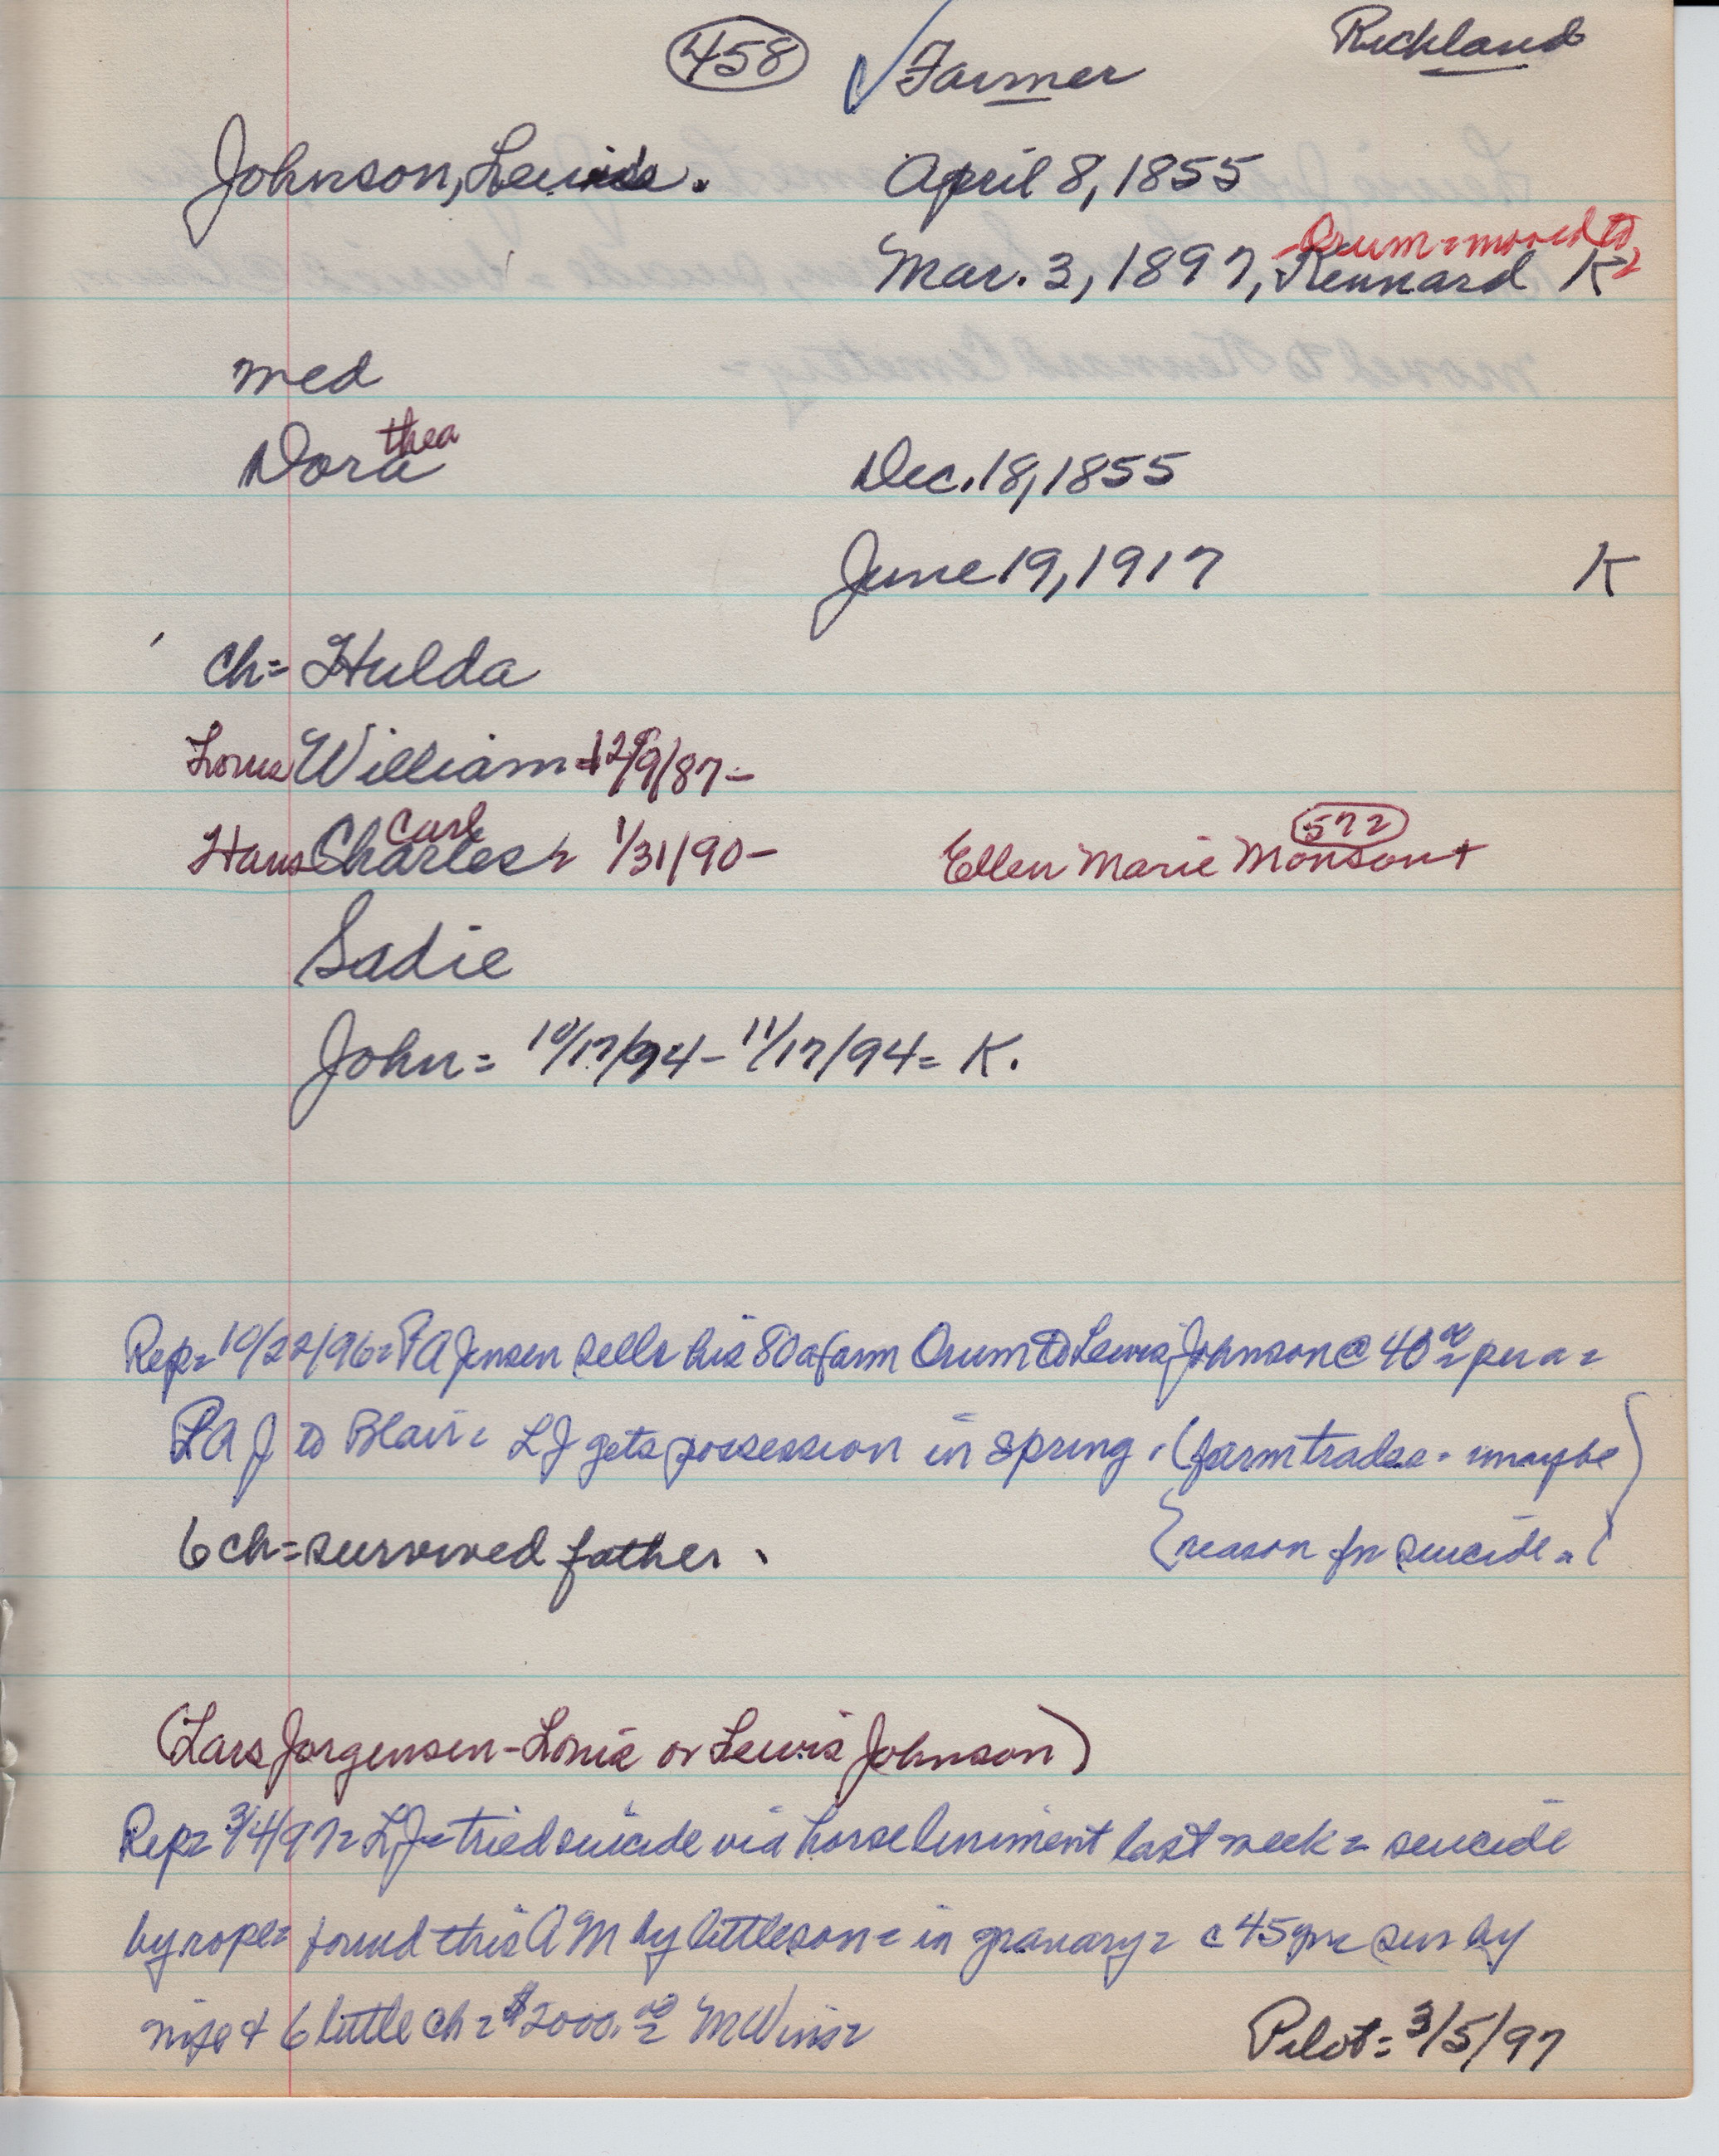 458 ✓ Farmer Richland
Johnson, Lewis. April 8, 1855
Orum = moved to
Mar. 3, 1897, Kennard K
med
Dorathea Dec. 18, 1855
June 19, 1917 K
ch = Hulda
Louis William = 12/9/87 -
Carl 572
Hans Charles = 1/31/90 - Ellen Marie Monson +
Sadie
John = 10/17/94 - 11/17/94 = K.
Rep = 10/22/96 = PA Jensen sells his 80 a farm Orum to Lewis Johnson @ 40 00 per a =
PA J to Blair = LJ gets possession in spring. (farm trades - maybe
6 ch = survived father. reason for suicide =)
(Lars Jorgensen - Louie or Lewis Johnson)
Rep = 3/4/97 = LJ = tried suicide via horse liniment last week = suicide
by rope = found this AM by little son = in granary = c 45 yrs = sur by
wife + 6 little ch = $2000. 00 MW ins =
Pilot = 3/5/97